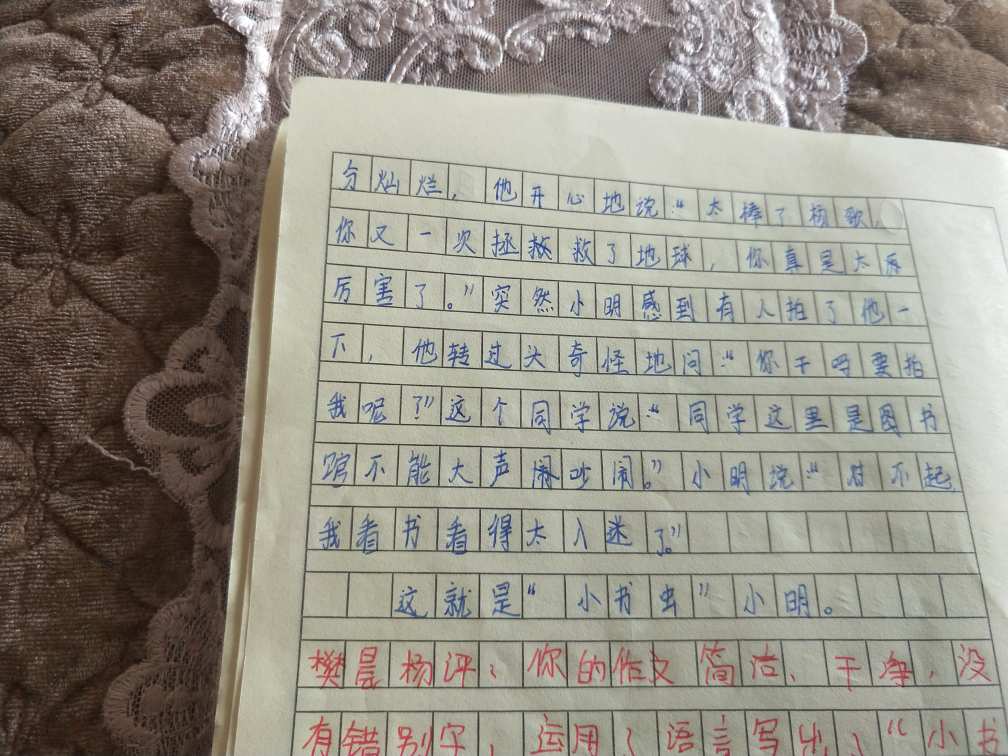 分灿烂，他开心地说：“太棒了杨歌，
你又一次拯救救了地球，你真是太厉
厉害了。”突然小明感到有人拍了他一
下，他转过头奇怪地问：“你干吗要拍
我呢？”这个同学说：“同学这里是图书
馆不能大声闹吵闹。”小明说：“对不起，
我看书看得太入迷了。”
这就是“小书虫”小明。
樊晨杨评：你的作文简洁、干净，没
有错别字，运用了语言写出了“小书